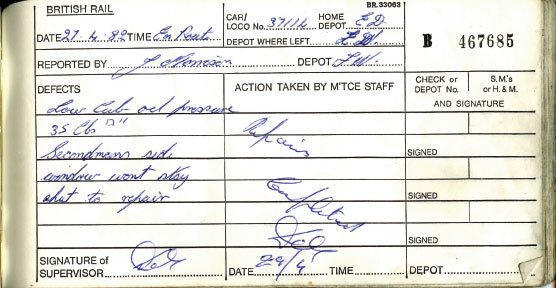 BRITISH RAIL
BR.33063
DATE 27 4 82 TIME En Route
CAR/ LOCO No. 37114 HOME DEPOT E D
DEPOT WHERE LEFT F.W.
B 467685
REPORTED BY J Morrison DEPOT F.W.
DEFECTS
ACTION TAKEN BY M'TCE STAFF
CHECK or DEPOT No.
S.M.'s or H. & M.
AND SIGNATURE
Low Lub oil pressure
35 lbs "
Secondmans side
window wont stay
shut to repair
Repairs
Completed
SIGNED
SIGNED
SIGNED
SIGNATURE of SUPERVISOR
DATE 29/4 TIME
DEPOT